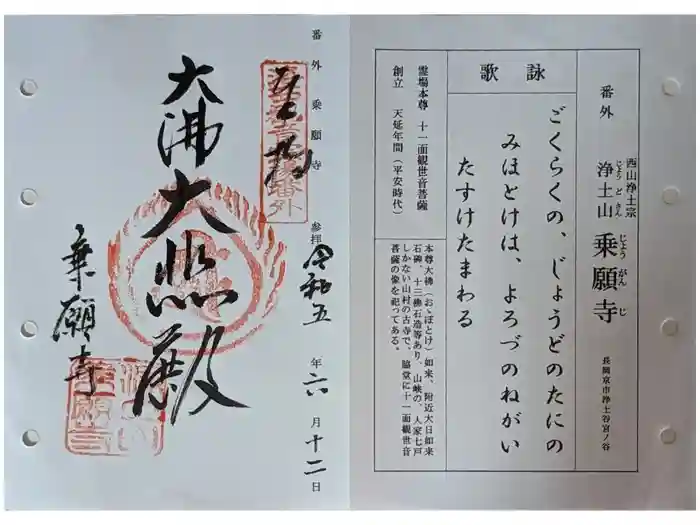 番外
西山浄土宗
浄土山 乗願寺
じょうどさん じょうがんじ
長岡京市浄土谷宮ノ谷
詠歌
ごくらくの、じょうどのたにの
みほとけは、よろづのねがい
たすけたまわる
霊場本尊 十一面観世音菩薩
創立 天延年間(平安時代)
本尊大佛(おゝぼとけ)如来、附近大日如来
石碑、十三佛石造等あり、山峡の、人家七戸
しかない山村の古寺で、脇堂に十一面観世音
菩薩の像を祀ってある。
番外 乗願寺 参拝 令和五年六月十二日
奉拝
大佛大悲殿
乗願寺